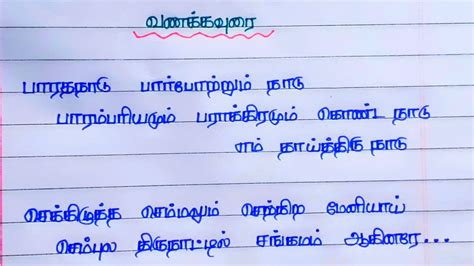 வணக்கவுரை
பாரதநாடு பார்போற்றும் நாடு
பாரம்பரியமும் பராக்கிரமும் கொண்ட நாடு
எம் தாய்த்திரு நாடு
செக்கிழுத்த செம்மலும் செந்நிற மேனியாய்
செம்புல திருநாட்டில் சங்கமம் ஆகினரே...